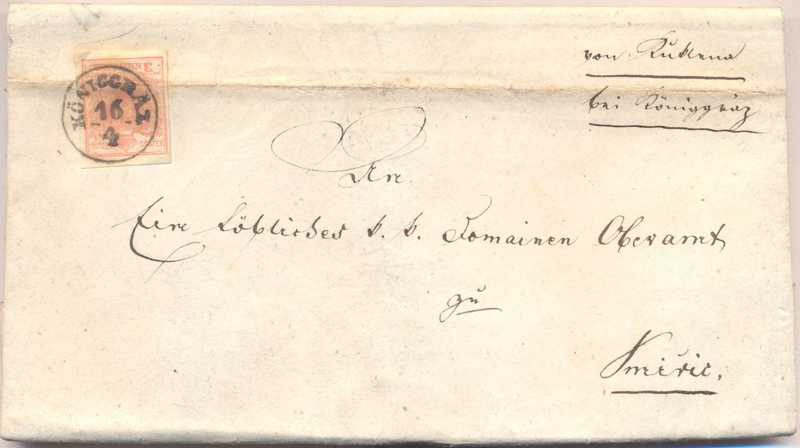 KÖNIGGRÄZ
16
4
von Kuklena
bei Königgräz
An
Eine Löbliches k. k. Domainen Oberamt
zu
Smiřic.